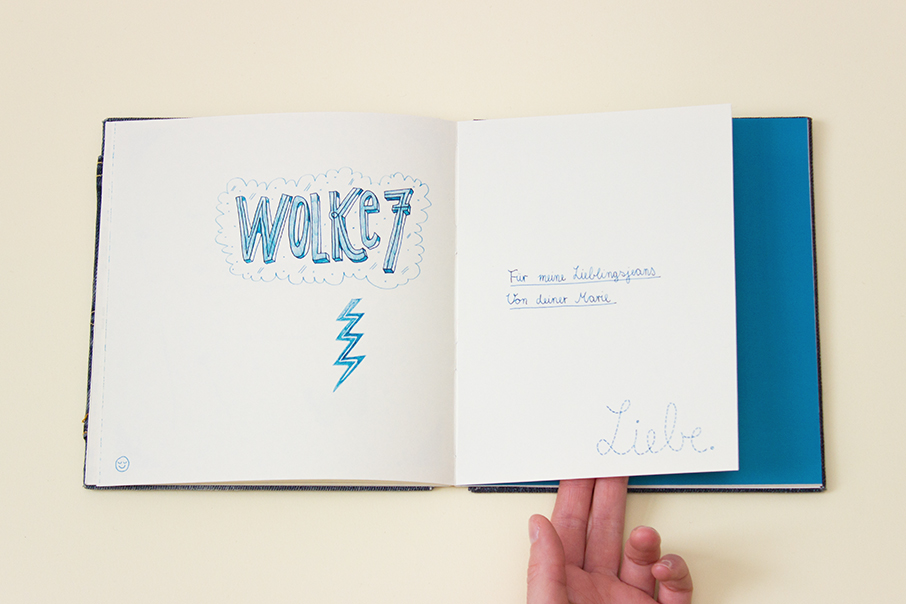 WOLKE 7
Für meine Lieblingsjeans
Von deiner Marie
Liebe.